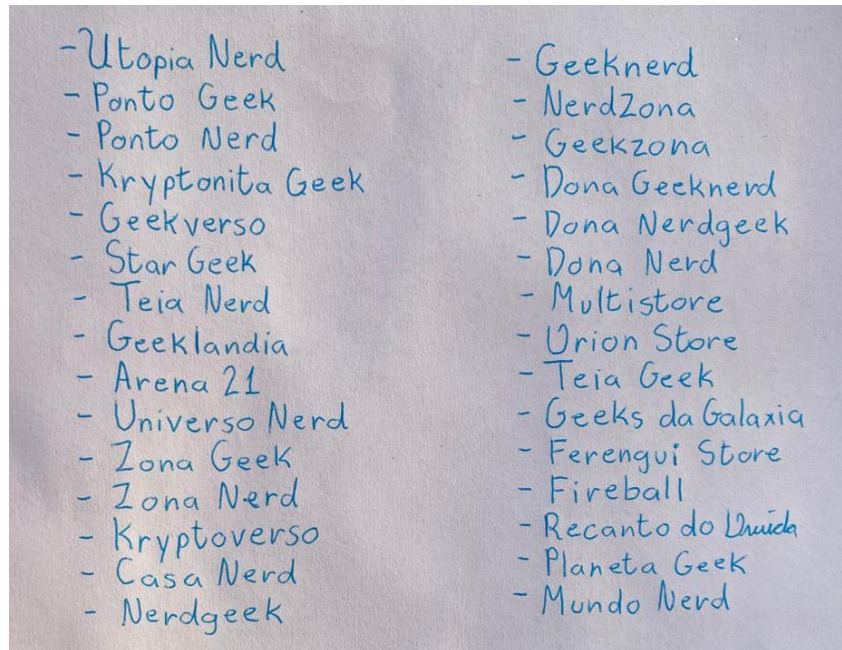 - Utopia Nerd
- Ponto Geek
- Ponto Nerd
- Kryptonita Geek
- Geekverso
- Star Geek
- Teia Nerd
- Geeklandia
- Arena 21
- Universo Nerd
- Zona Geek
- Zona Nerd
- Kryptoverso
- Casa Nerd
- Nerdgeek
- Geeknerd
- NerdZona
- Geekzona
- Dona Geeknerd
- Dona Nerdgeek
- Dona Nerd
- Multistore
- Orion Store
- Teia Geek
- Geeks da Galaxia
- Ferengui Store
- Fireball
- Recanto do Druida
- Planeta Geek
- Mundo Nerd